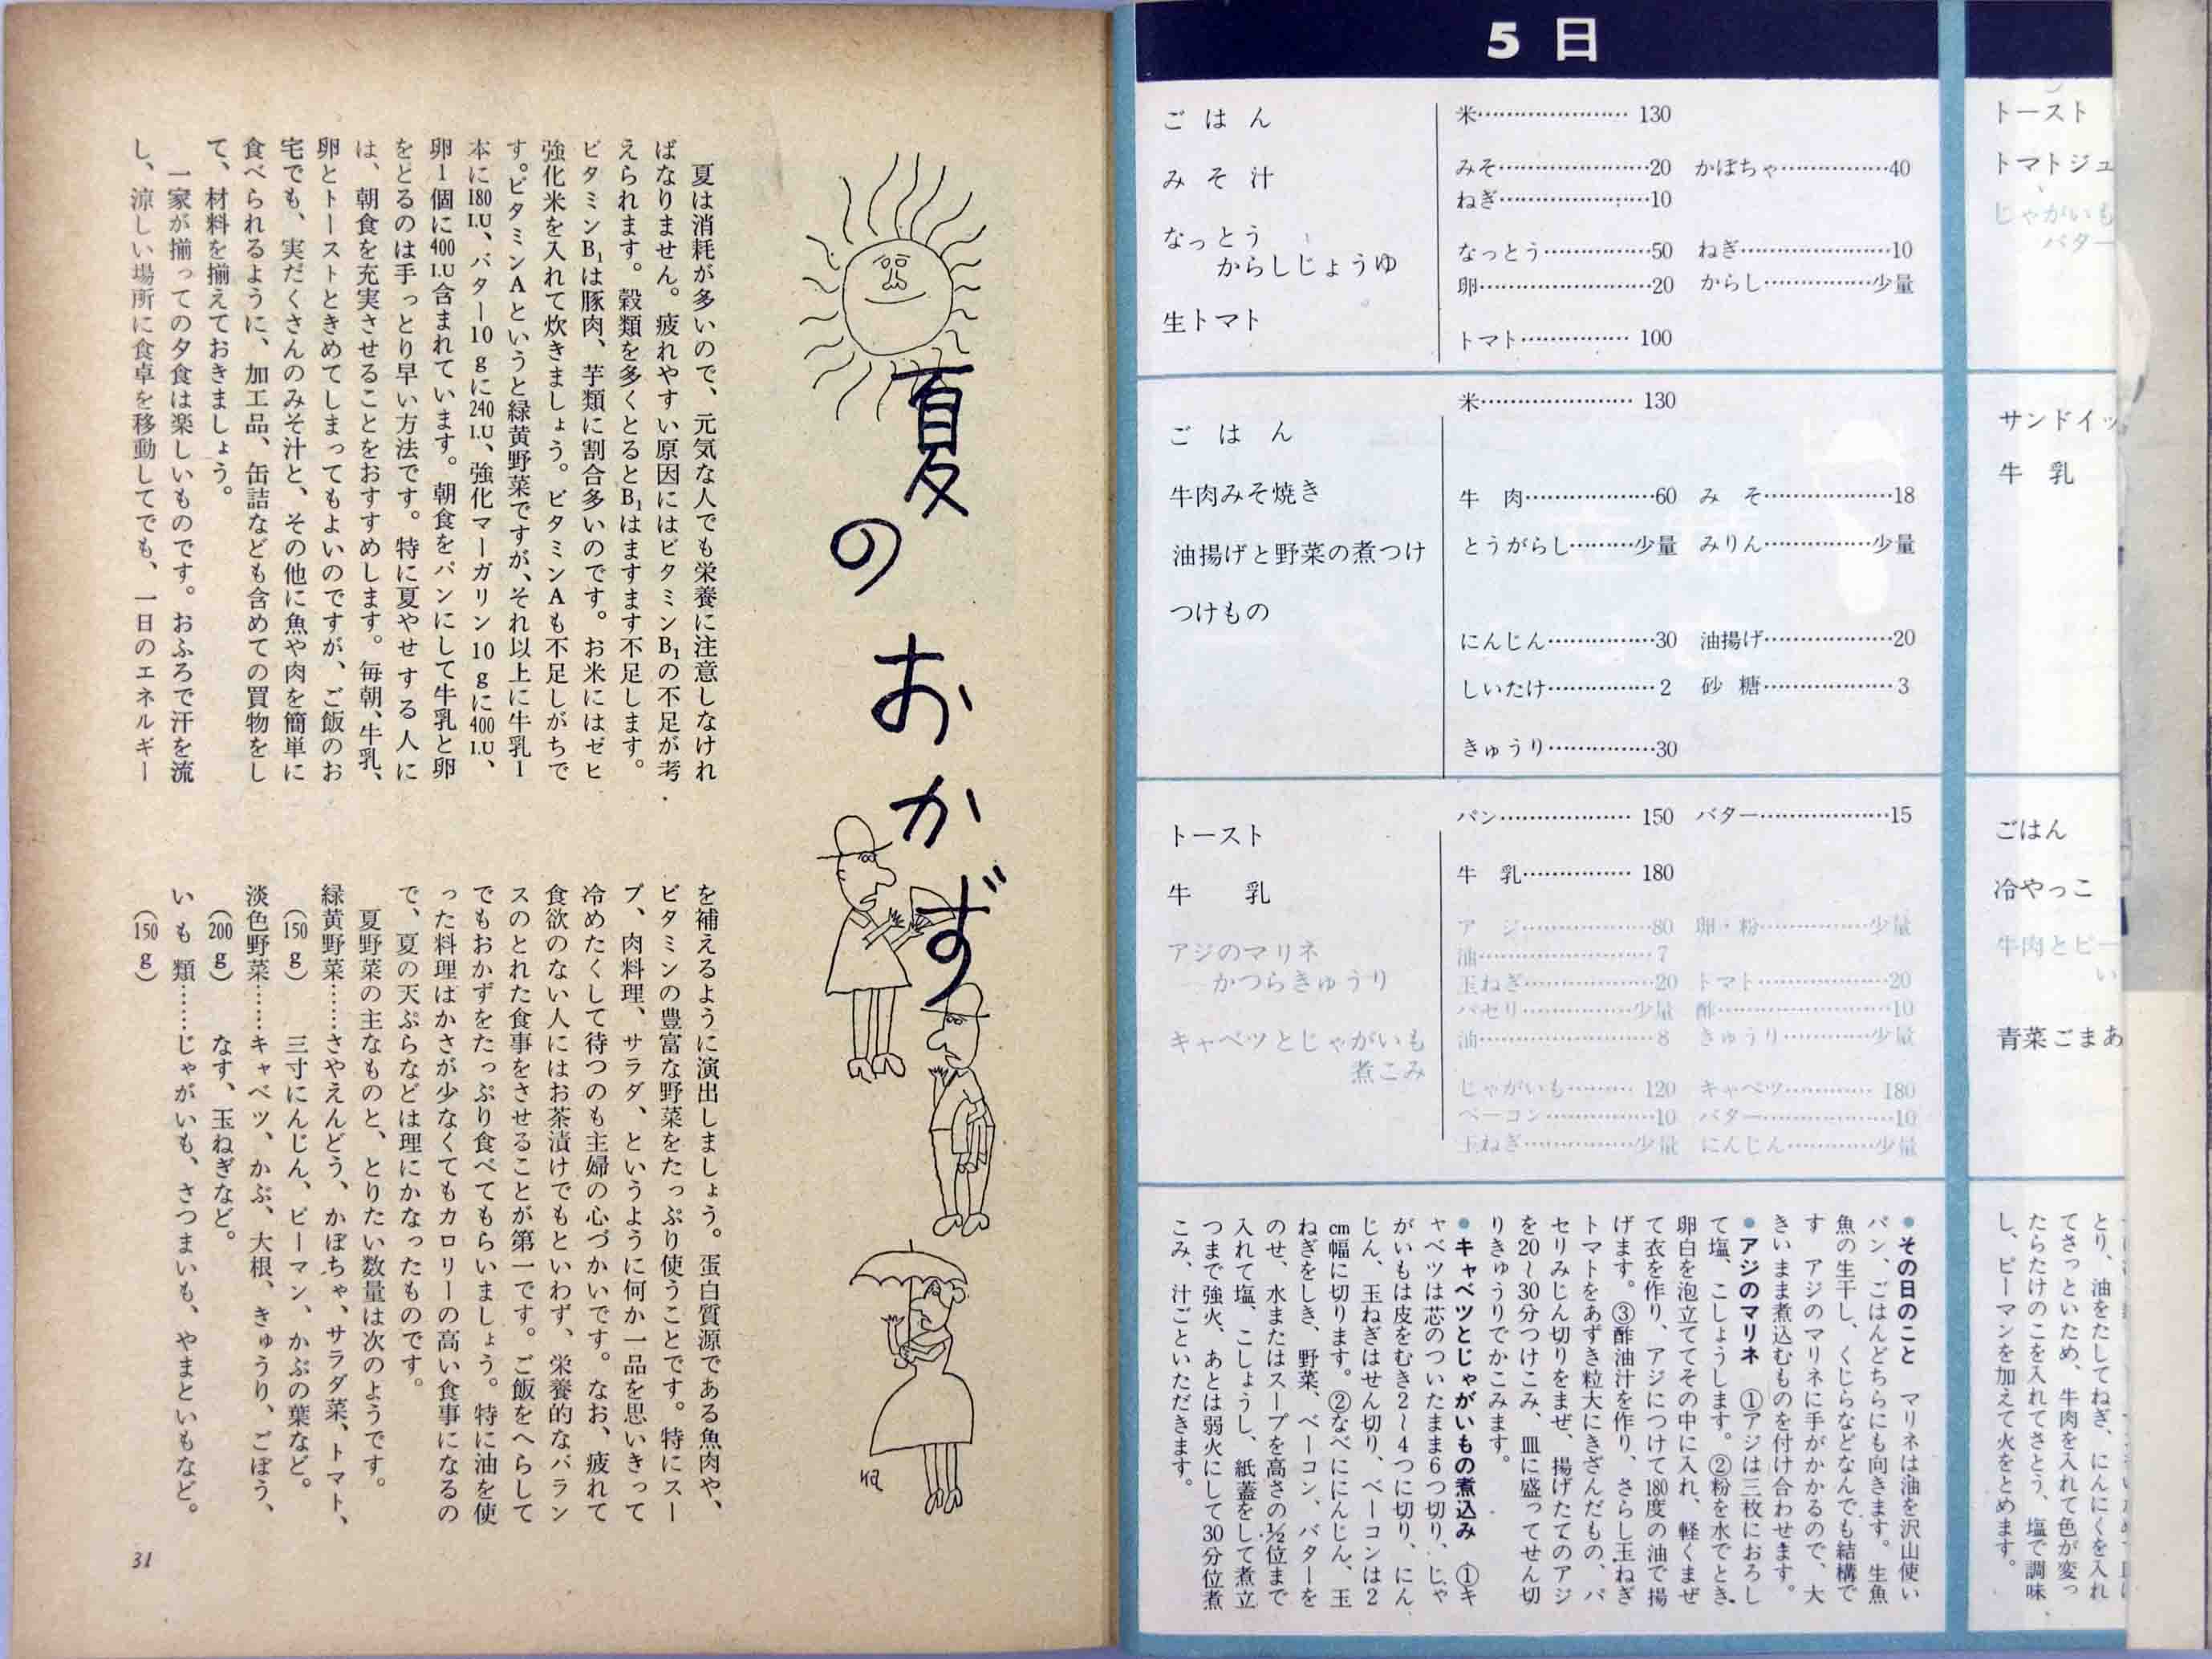 夏のおかず
夏は消耗が多いので、元気な人でも栄養に注意しなけれ
ばなりません。疲れやすい原因にはビタミンB₁の不足が考
えられます。穀類を多くとるとB₁はますます不足します。
ビタミンB₁は豚肉、芋類に割合多いのです。お米にはゼヒ
強化米を入れて炊きましょう。ビタミンAも不足しがちで
す。ビタミンAというと緑黄野菜ですが、それ以上に牛乳1
本に180I.U、バター10gに240I.U、強化マーガリン10gに400I.U、
卵1個に400I.U含まれています。朝食をパンにして牛乳と卵
をとるのは手っとり早い方法です。特に夏やせする人に
は、朝食を充実させることをおすすめします。毎朝、牛乳、
卵とトーストときめてしまってもよいのですが、ご飯のお
宅でも、実だくさんのみそ汁と、その他に魚や肉を簡単に
食べられるように、加工品、缶詰なども含めての買物をし
て、材料を揃えておきましょう。
一家が揃っての夕食は楽しいものです。おふろで汗を流
し、涼しい場所に食卓を移動してでも、一日のエネルギー
を補えるように演出しましょう。蛋白質源である魚肉や、
ビタミンの豊富な野菜をたっぷり使うことです。特にスー
プ、肉料理、サラダ、というように何か一品を思いきって
冷めたくして待つのも主婦の心づかいです。なお、疲れて
食欲のない人にはお茶漬けでもといわず、栄養的なバラン
スのとれた食事をさせることが第一です。ご飯をへらして
でもおかずをたっぷり食べてもらいましょう。特に油を使
った料理はかさが少なくてもカロリーの高い食事になるの
で、夏の天ぷらなどは理にかなったものです。
夏野菜の主なものと、とりたい数量は次のようです。
緑黄野菜……さやえんどう、かぼちゃ、サラダ菜、トマト、
(150g) 三寸にんじん、ピーマン、かぶの葉など。
淡色野菜……キャベツ、かぶ、大根、きゅうり、ごぼう、
(200g) なす、玉ねぎなど。
いも類……じゃがいも、さつまいも、やまといもなど。
(150g)
31
5日
ごはん
みそ汁
なっとう
からしじょうゆ
生トマト
米…………………130
みそ…………………20 かぼちゃ……………40
ねぎ…………………10
なっとう……………50 ねぎ…………………10
卵……………………20 からし……………少量
トマト……………100
ごはん
牛肉みそ焼き
油揚げと野菜の煮つけ
つけもの
米…………………130
牛肉…………………60 みそ…………………18
とうがらし………少量 みりん……………少量
にんじん……………30 油揚げ………………20
しいたけ……………2 砂糖…………………3
きゅうり……………30
トースト
牛乳
アジのマリネ
かつらきゅうり
キャベツとじゃがいも
煮こみ
パン………………150 バター………………15
牛乳………………180
アジ…………………80 卵・粉……………少量
油……………………7
玉ねぎ………………20 トマト………………20
パセリ……………少量 酢……………………10
油……………………8 きゅうり…………少量
じゃがいも………120 キャベツ…………180
ベーコン……………10 バター………………10
玉ねぎ……………少量 にんじん…………少量
●その日のこと マリネは油を沢山使い
パン、ごはんどちらにも向きます。生魚
魚の生干し、くじらなどなんでも結構で
す アジのマリネに手がかかるので、大
きいまま煮込むものを付け合わせます。
●アジのマリネ ①アジは三枚におろし
て塩、こしょうします。②粉を水でとき、
卵白を泡立ててその中に入れ、軽くまぜ
て衣を作り、アジにつけて180度の油で揚
げます。③酢油汁を作り、さらし玉ねぎ
トマトをあずき粒大にきざんだもの、パ
セリみじん切りをまぜ、揚げたてのアジ
を20〜30分つけこみ、皿に盛ってせん切
りきゅうりでかこみます。
●キャベツとじゃがいもの煮込み ①キ
ャベツは芯のついたまま6つ切り、じゃ
がいもは皮をむき2〜4つに切り、にん
じん、玉ねぎはせん切り、ベーコンは2
cm幅に切ります。②なべににんじん、玉
ねぎをしき、野菜、ベーコン、バターを
のせ、水またはスープを高さの½位まで
入れて塩、こしょうし、紙蓋をして煮立
つまで強火、あとは弱火にして30分位煮
こみ、汁ごといただきます。
トースト
トマトジュ
じゃがいも
バター
サンドイッ
牛乳
ごはん
冷やっこ
牛肉とピー
い
青菜ごまあ
とり、油をたしてねぎ、にんにくを入れ
てさっといため、牛肉を入れて色が変っ
たらたけのこを入れてさとう、塩で調味
し、ピーマンを加えて火をとめます。